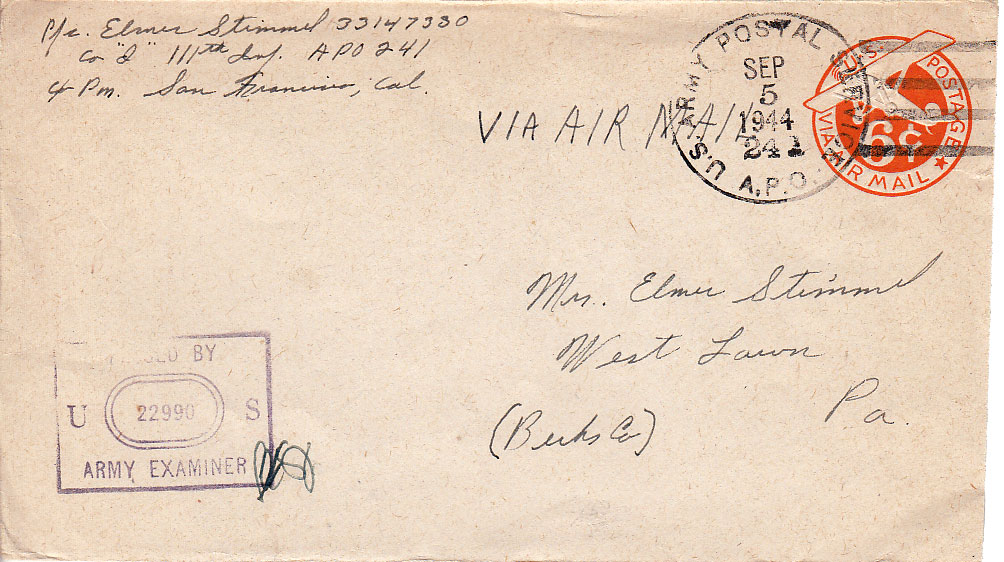 Pfc. Elmer Stimmel 33147330
Co "I" 111th Inf. APO 241
% Pm. San Francisco, Cal.
VIA AIR MAIL
U.S. ARMY POSTAL SERVICE
SEP
5
1944
241
A.P.O.
U.S. POSTAGE
6¢
VIA AIR MAIL
Mrs. Elmer Stimmel
West Lawn
Pa.
(Berks Co)
PASSED BY
U 22990 S
ARMY EXAMINER